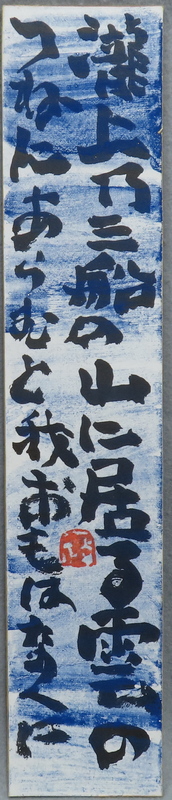 瀧上乃三船の山に居る雲の
つねにあらむと我がおもはなくに